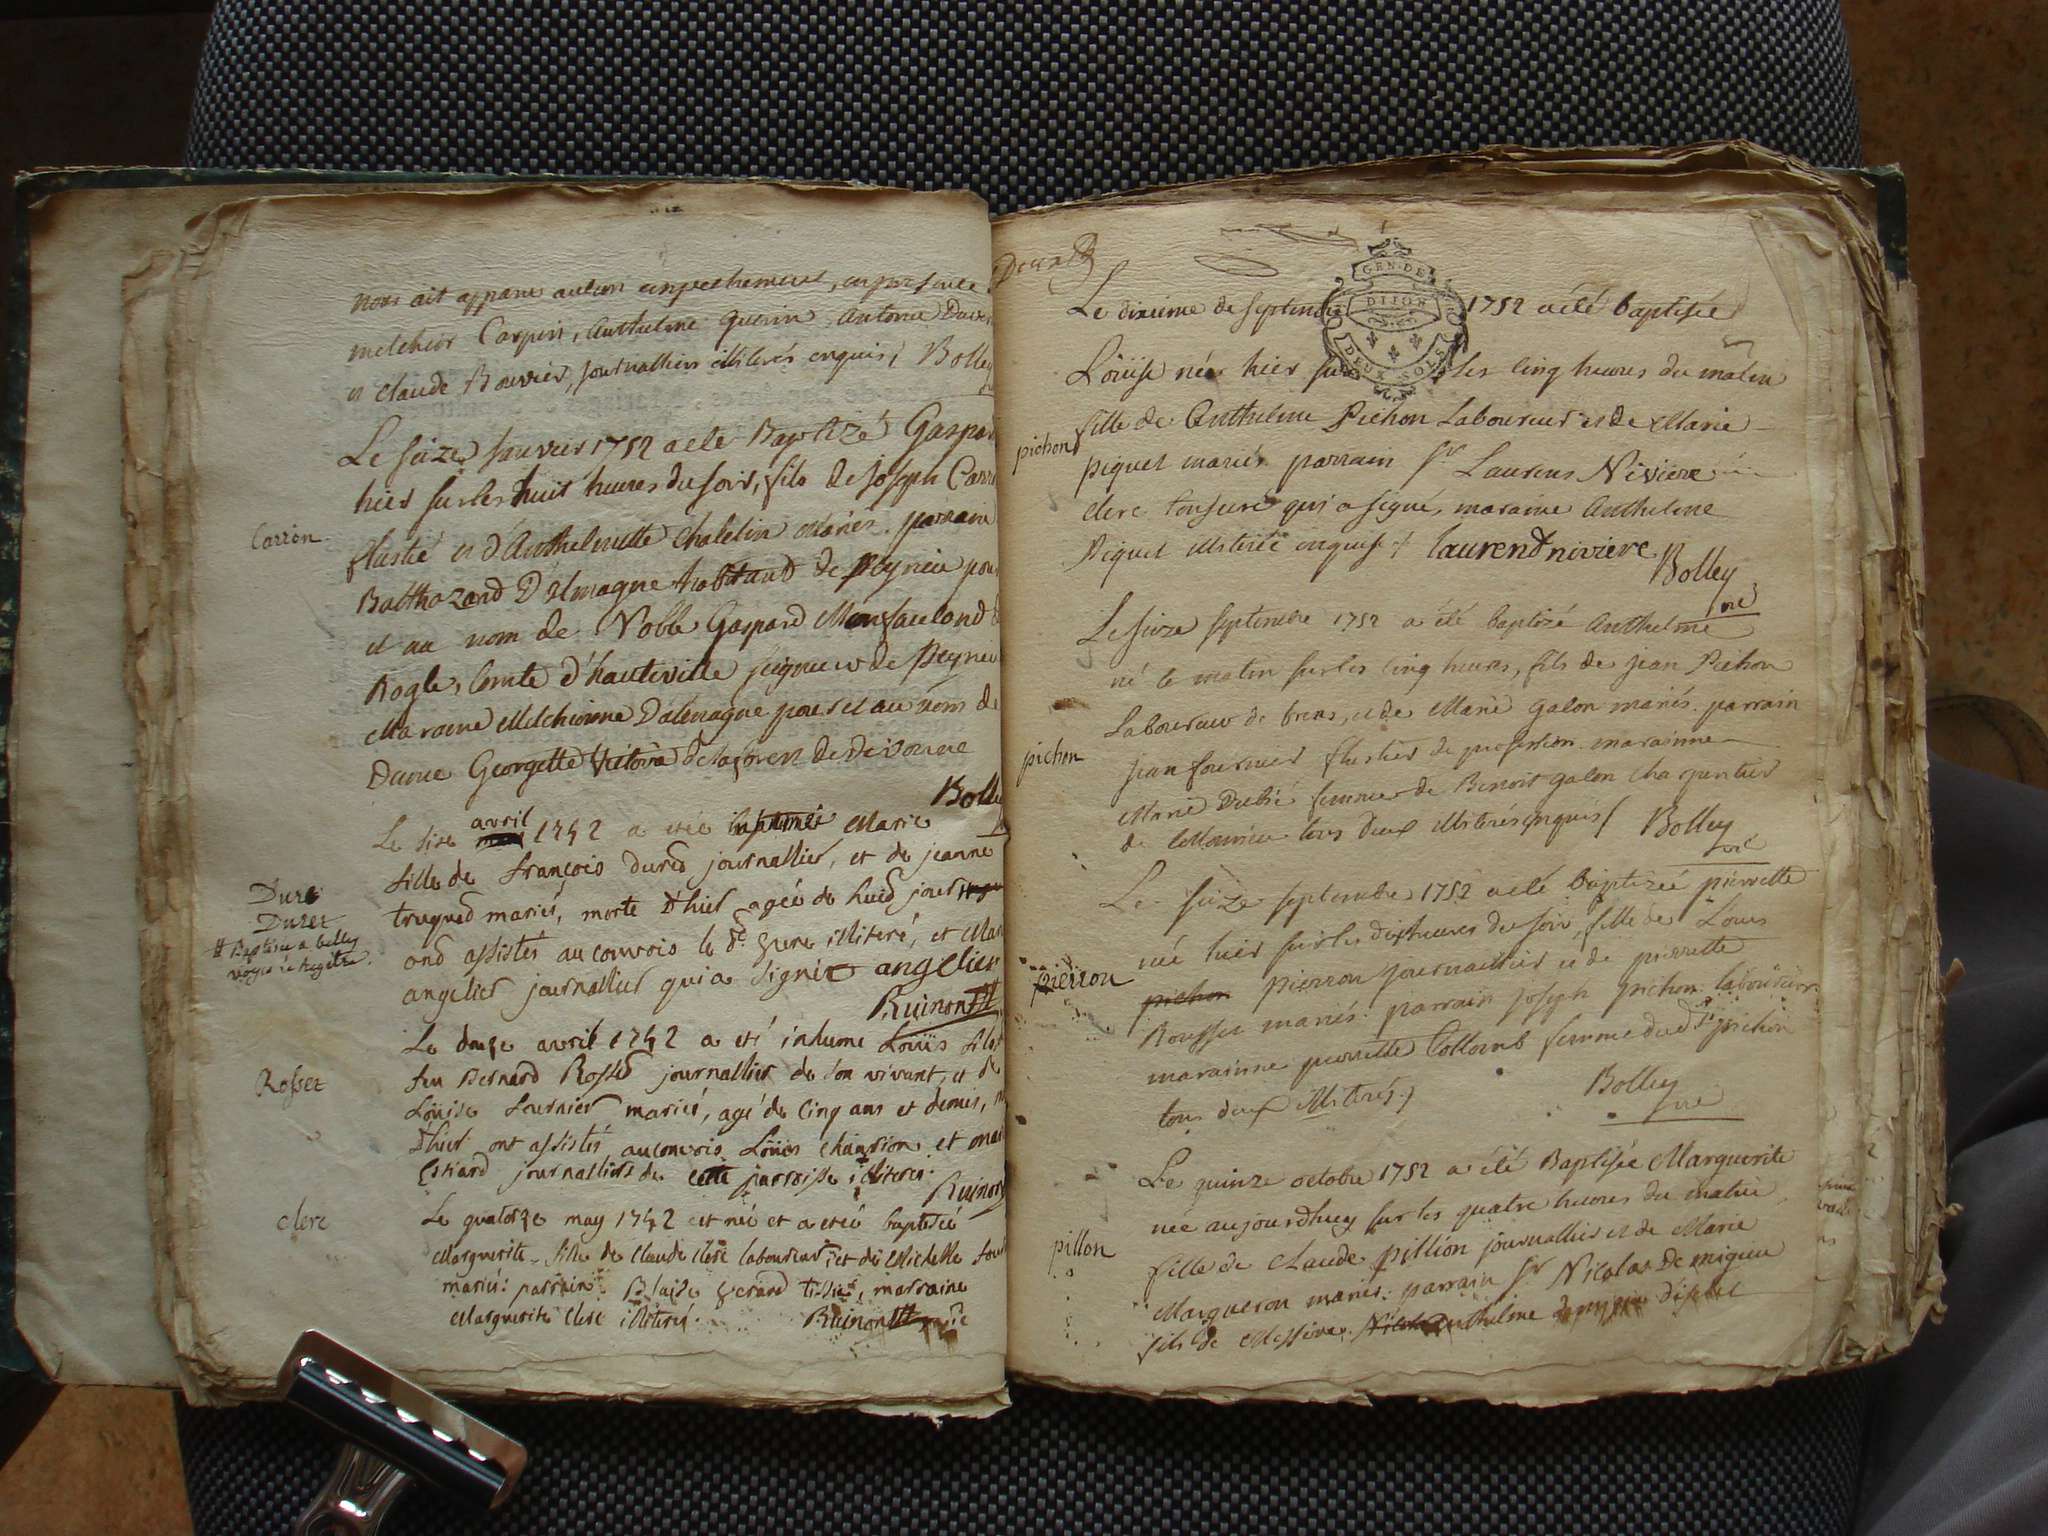 nous ait apparu aucun empechement, en presence
melchior Carpin, Anthelme Guerin, Antoine
et Claude Bouvier, journalliers illiterés enquis, Bolley
Le seize janvier 1752 a eté Baptizé Gaspar
hier sur les huit heures du soir, fils de Joseph Carr
Carron
et d'Anthelmette Chatelin mariés. parrain
Balthazard D'almagne habitant de Peyrieu pour
et au nom de Noble Gaspard Monfaucond
Rogle, Comte d'hauteville seigneur de Peyrieu
Maraine Melchionne Dalemagne pour et au nom de
Dame Georgette de la forest de divonne
Bolle
Le avril 1742 a eté Marie
fille de françois dured journallier, et de jeanne
Dure
Duret
truqued mariés, morte d'hier agée de hued jour
# Baptisée a belley
voyés le registre.
ond assistés au convois le illiteré, et
angelier journallier qui a signé angelier
Ruinond
Le douze avril 1742 a eté inhumé Louis fils
Rosset
feu Bernard Rossed journallier de son vivant, et de
Louise fournier mariés, agé de cinq ans et demis,
d'hier ont assistés au convois Louis chanrion et
journalliers de cette parroisse illiterés.
Ruinon
clerc
Le quatorze may 1742 est née et a eteé baptisée
Marguerite fille de claude clerc laboureur, et de Michelle
mariés: parrain Blaise gerard marraine
Marguerite clerc illiterés.
Ruinond
GEN. DE
DIJON
DEUX SOLS
Le dixieme de septembre 1752 a eté baptisée
Louise née hier sur les cinq heures du matin
fille de Anthelme Pichon Laboureur et de Marie
pichon
Piquet mariés parrain Sr Laurens Niviere
clerc tonsuré qui a signé, maraine Anthelme
Piquet illiterée enquise / laurend niviere.
Bolley
vre
Le seize septembre 1752 a été baptizé Anthelme
né le matin sur les cinq heures, fils de jean Pichon
Laboureur de brens, et de Marie galon mariés. parrain
pichon
jean fournier de profession marainne
Marie Dubié femme de Benoit galon Charpentier
de tous deux illiterés enquis / Bolley
vre
Le seize septembre 1752 a eté baptizée pierrette
née hier sur les dix heures du soir, fille de Louis
pierron
pichon pierron journallier et de pierrette
Rousset mariés. parrain joseph pichon laboureur
marainne pierrette Collomb femme dud Sr pichon
tous deux illiterés. /
Bolley
vre
Le quinze octobre 1752 a été Baptisée Marguerite
née aujourdhuy sur les quatre heures du matin,
pillon
fille de claude pillion journallier et de Marie
Margueron mariés. parrain Sr Nicolas De migieu
fils de Messire Anthelme